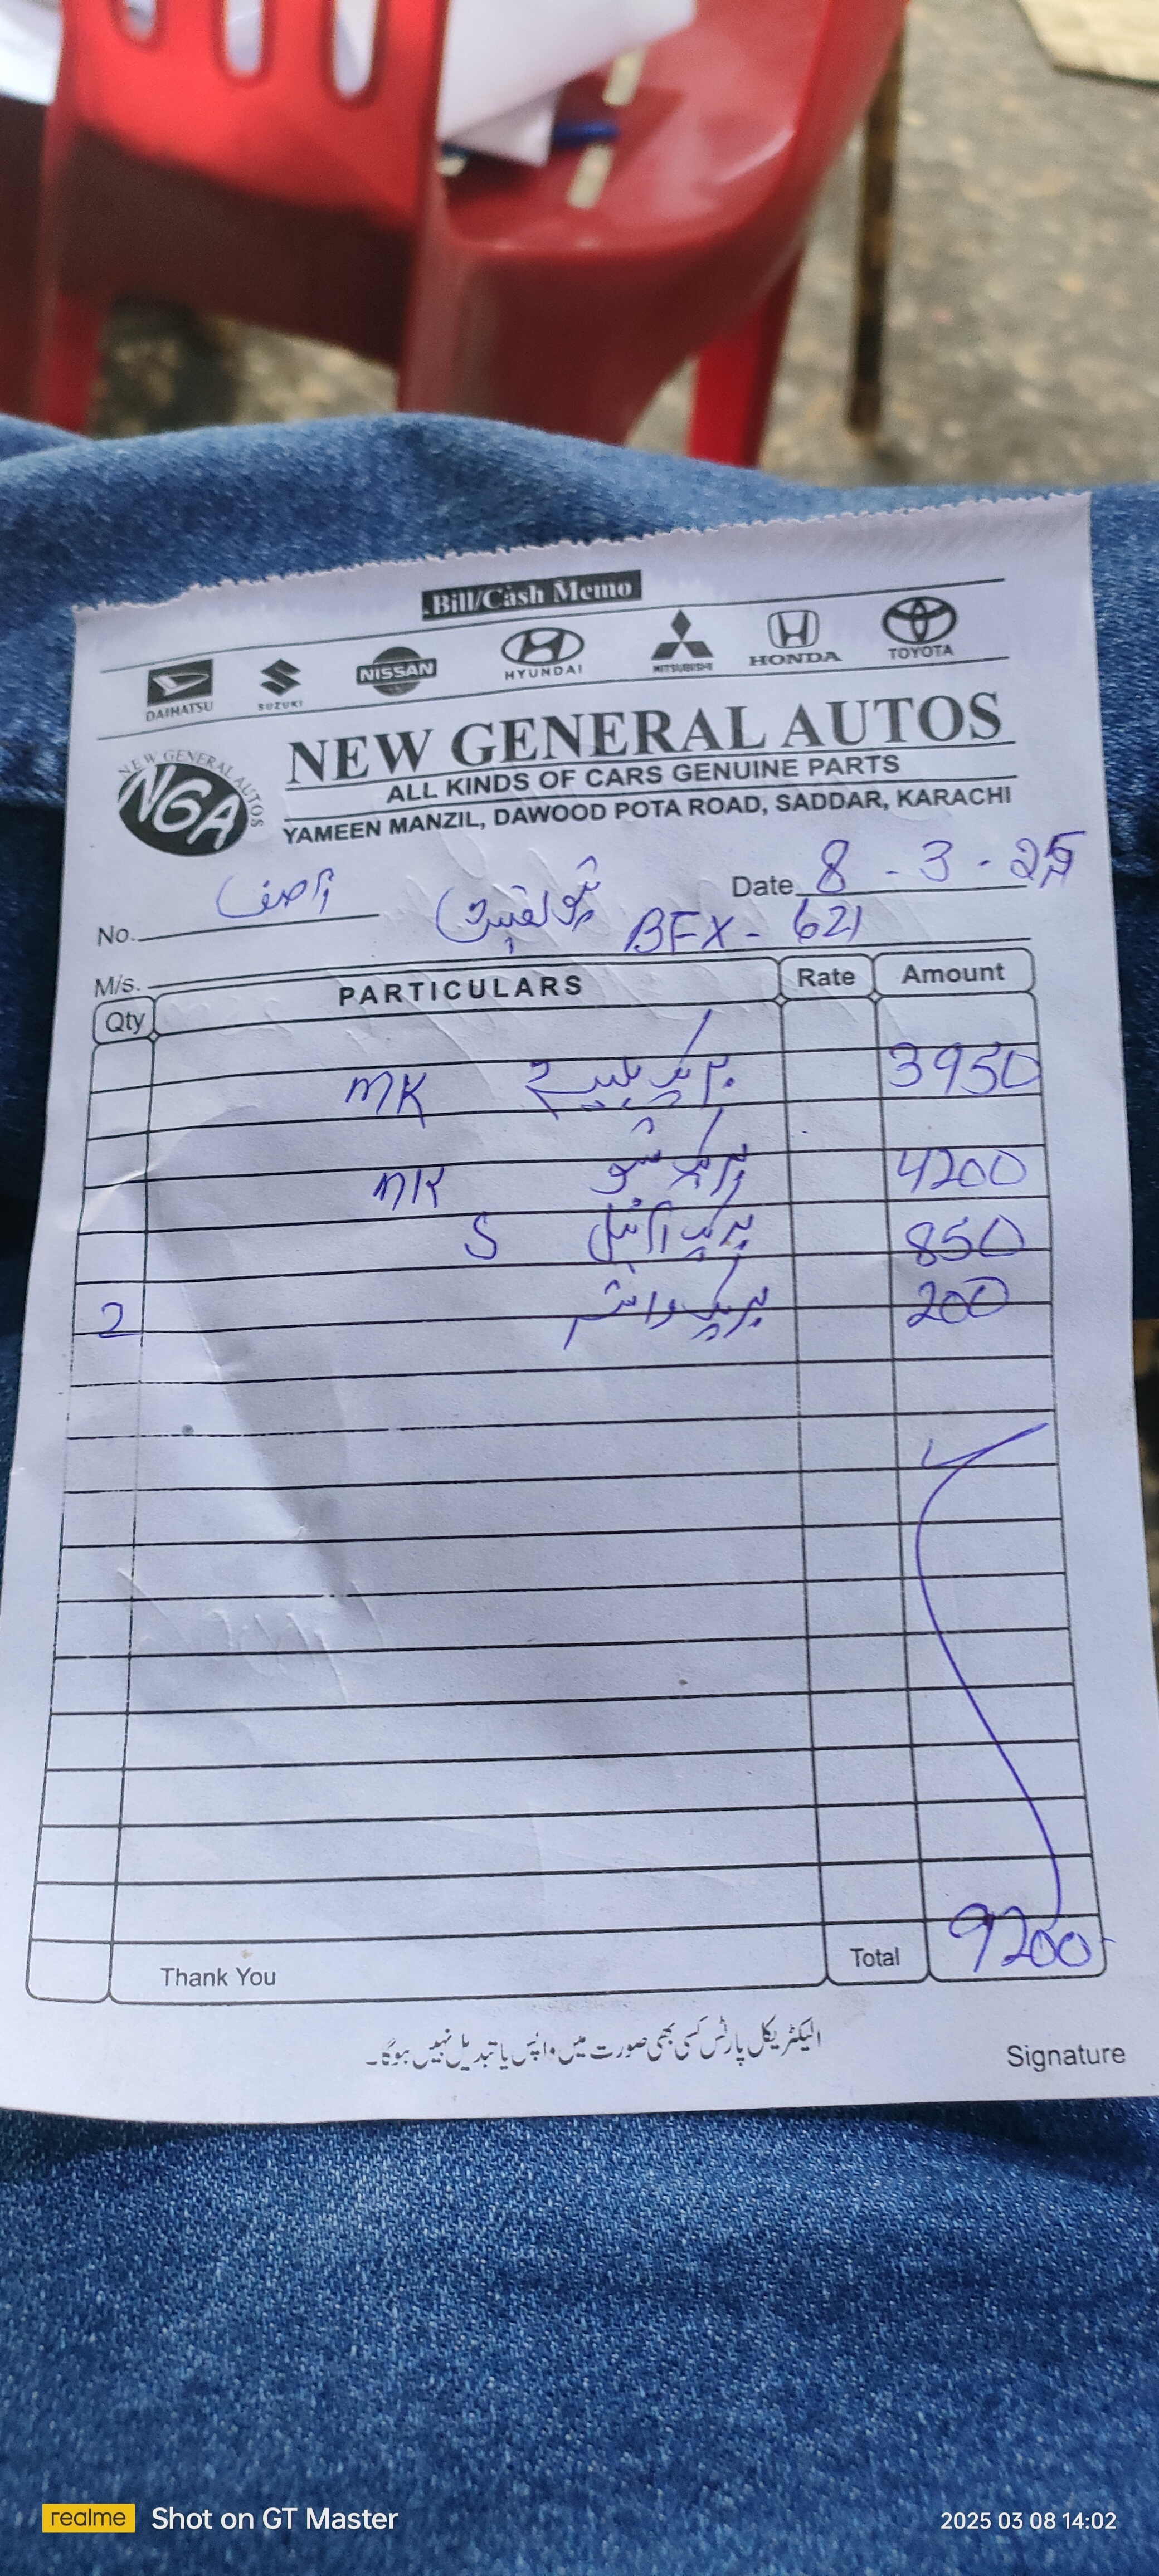 Bill/Cash Memo
DAIHATSU SUZUKI NISSAN HYUNDAI MITSUBISHI HONDA TOYOTA
NEW GENERAL AUTOS
NGA
NEW GENERAL AUTOS
ALL KINDS OF CARS GENUINE PARTS
YAMEEN MANZIL, DAWOOD POTA ROAD, SADDAR, KARACHI
No. آصف Date 8 - 3 - 25
M/s. BFX - 621
Qty PARTICULARS Rate Amount
بریک MK 3950
بریک شو MK 4200
بریک آئل S 850
2 بریک واشر 200
Thank You Total 9200
الیکٹریکل پارٹس کسی بھی صورت میں واپس یا تبدیل نہیں ہوگا۔
Signature
realme Shot on GT Master 2025 03 08 14:02